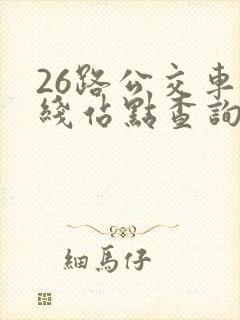 26路公交車
綫佔點查詢
細馬仔